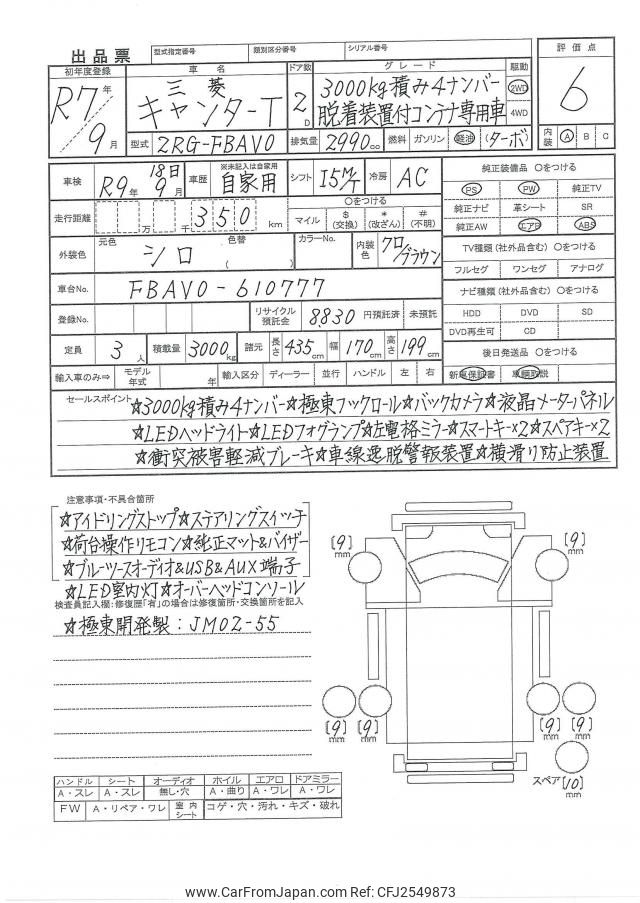 出品票 型式指定番号 類別区分番号 シリアル番号
初年度登録 車名 ドア数 グレード 駆動 評価点
R7年 三菱 2D 3000kg積み4ナンバー 2WD 6
9月 キャンターT 脱着装置付コンテナ専用車 4WD
型式 2RG-FBAV0 排気量 2990cc 燃料 ガソリン 軽油 (ターボ) 内装 A B C
車検 R9年 18日 9月 車歴 ※未記入は自家用 自家用 シフト I5M/T 冷房 AC
純正装備品 〇をつける
PS PW 純正TV
走行距離 万 千 350 km 〇をつける
マイル $(交換) *(改ざん) #(不明)
純正ナビ 革シート SR
純正AW エアB ABS
外装色 元色 シロ 色替 ( ) カラーNo. 内装色 クロ/ブラウン
TV種類 (社外品含む) 〇をつける
フルセグ ワンセグ アナログ
車台No. FBAV0-610777
ナビ種類 (社外品含む) 〇をつける
登録No. リサイクル預託金 8830 円預託済 未預託
HDD DVD SD
DVD再生可 CD
定員 3人 積載量 3000kg 諸元 長さ 435cm 幅 170cm 高さ 199cm
後日発送品 〇をつける
輸入車のみ⇒ モデル年式 年 輸入区分 ディーラー 並行 ハンドル 左 右
新車保証書 車輌取説
セールスポイント ☆3000kg積み4ナンバー☆極東フックロール☆バックカメラ☆液晶メーターパネル
☆LEDヘッドライト☆LEDフォグランプ☆左電格ミラー☆スマートキー×2☆スペアキー×2
☆衝突被害軽減ブレーキ☆車線逸脱警報装置☆横滑り防止装置
注意事項・不具合箇所
☆アイドリングストップ☆ステアリングスイッチ
☆荷台操作リモコン☆純正マット&バイザー
☆ブルーツースオーディオ&USB&AUX端子
☆LED室内灯☆オーバーヘッドコンソール
検査員記入欄:修復歴「有」の場合は修復箇所・交換箇所を記入
☆極東開発製:JM02-55
[9]mm [9]mm
[9]mm [9]mm [9]mm [9]mm
スペア[10]mm
ハンドル シート オーディオ ホイル エアロ ドアミラー
A・スレ A・スレ 無し・穴 A・曲り A・ワレ A・ワレ
FW A・リペア・ワレ 室内シート コゲ・穴・汚れ・キズ・破れ
www.CarFromJapan.com Ref: CFJ2549873